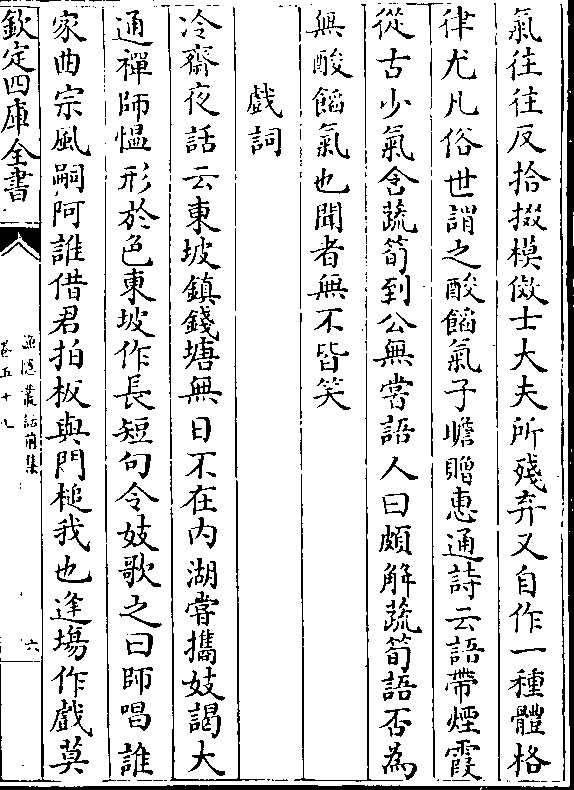 氣往往反拾掇模倣士大夫所殘弃又自作一種體格
律尤凡俗世謂之酸餡氣子瞻贈惠通詩云語帶煙霞
從古少氣含蔬筍到公無嘗語人曰頗解蔬筍語否為
無酸餡氣也聞者無不皆笑
戲詞
冷齋夜話云東坡鎮錢塘無日不在内湖嘗攜妓謁大
通禪師愠形於色東坡作長短句令妓歌之曰師唱誰
家曲宗風嗣阿誰借君拍板與門槌我也逢塲作戲莫
欽定四庫全書
漁隱叢話前集
卷五十七
六